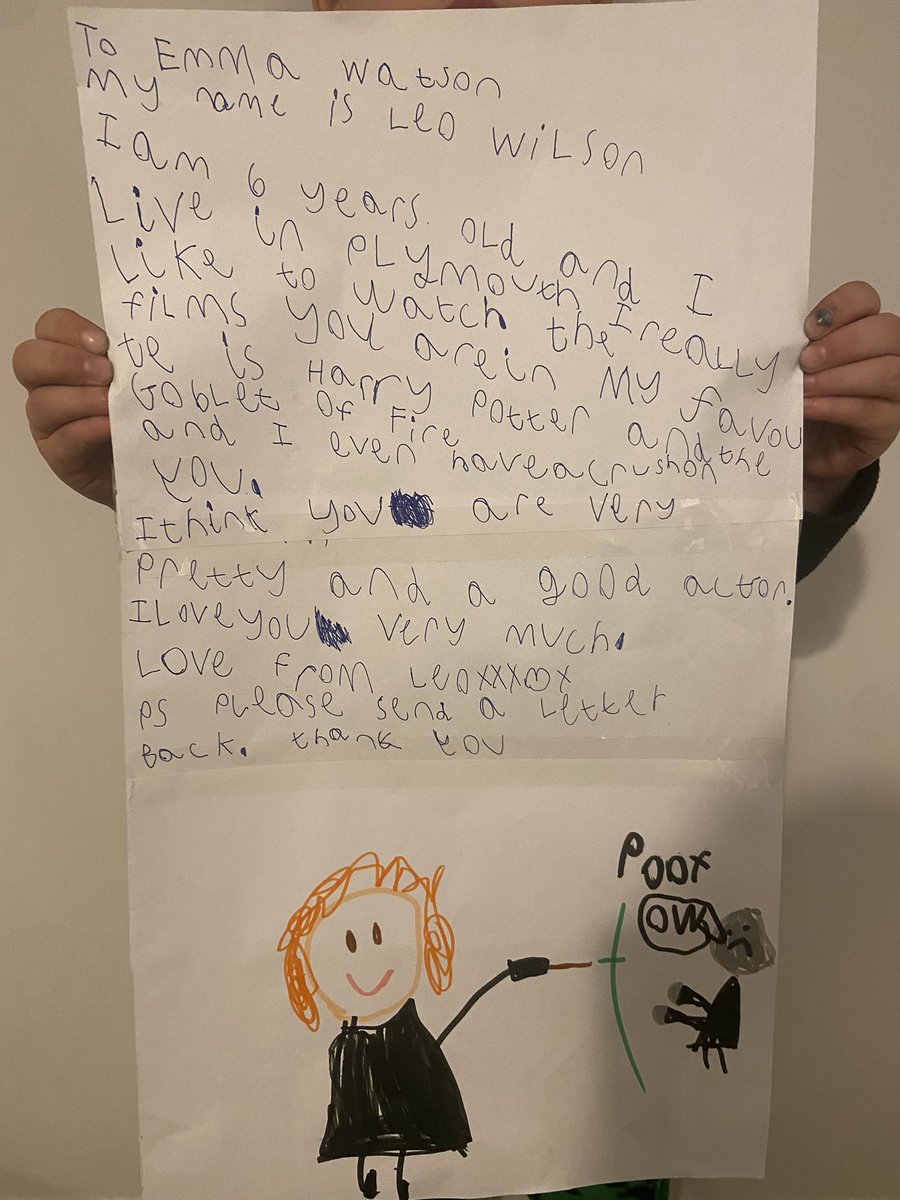 To EMMA watson
My name is Leo WiLson
I am 6 years. old and I
Live in PLYmouth I really
Like to watch the
films you are in My favou
te is Harry Potter and the
Goblet of Fire
and I even have a crush on
you.
I think you are very
Pretty and a good actor.
I Love you very much.
Love from Leo xxx♡x
PS PLease send a Letter
Back. thank you
Poof
OW